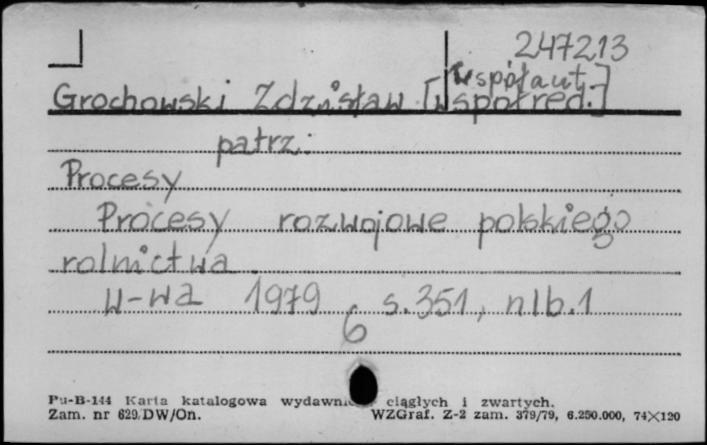 247213
[współaut.]
Grochowski Zdzisław [współred.]
patrz:
Procesy
Procesy rozwojowe polskiego
rolnictwa.
W-wa 1979, s. 351, nlb. 1
6
Pu-B-144 Karta katalogowa ciągłych i zwartych.
Zam. nr 629/DW/On. WZGraf. Z-2 zam. 379/79, 6.250.000, 74×120